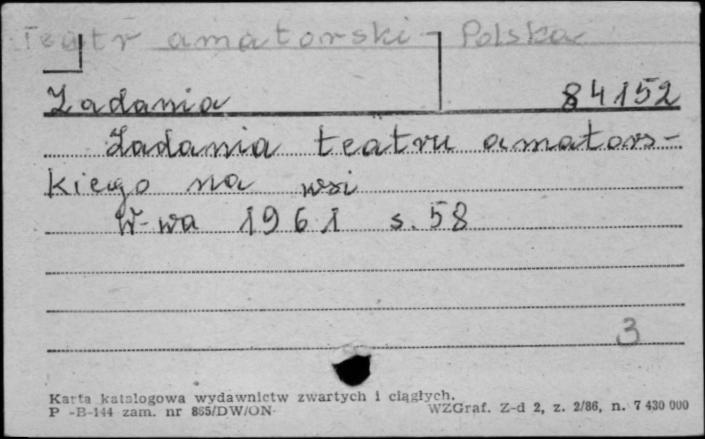 Teatr amatorski - Polska
Zadania 84152
Zadania teatru amators-
kiego na wsi
W-wa 1961 s. 58
3
Karta katalogowa wydawnictw zwartych i ciągłych.
P-B-144 zam. nr 865/DW/ON· WZGraf. Z-d 2, z. 2/86, n. 7 430 000